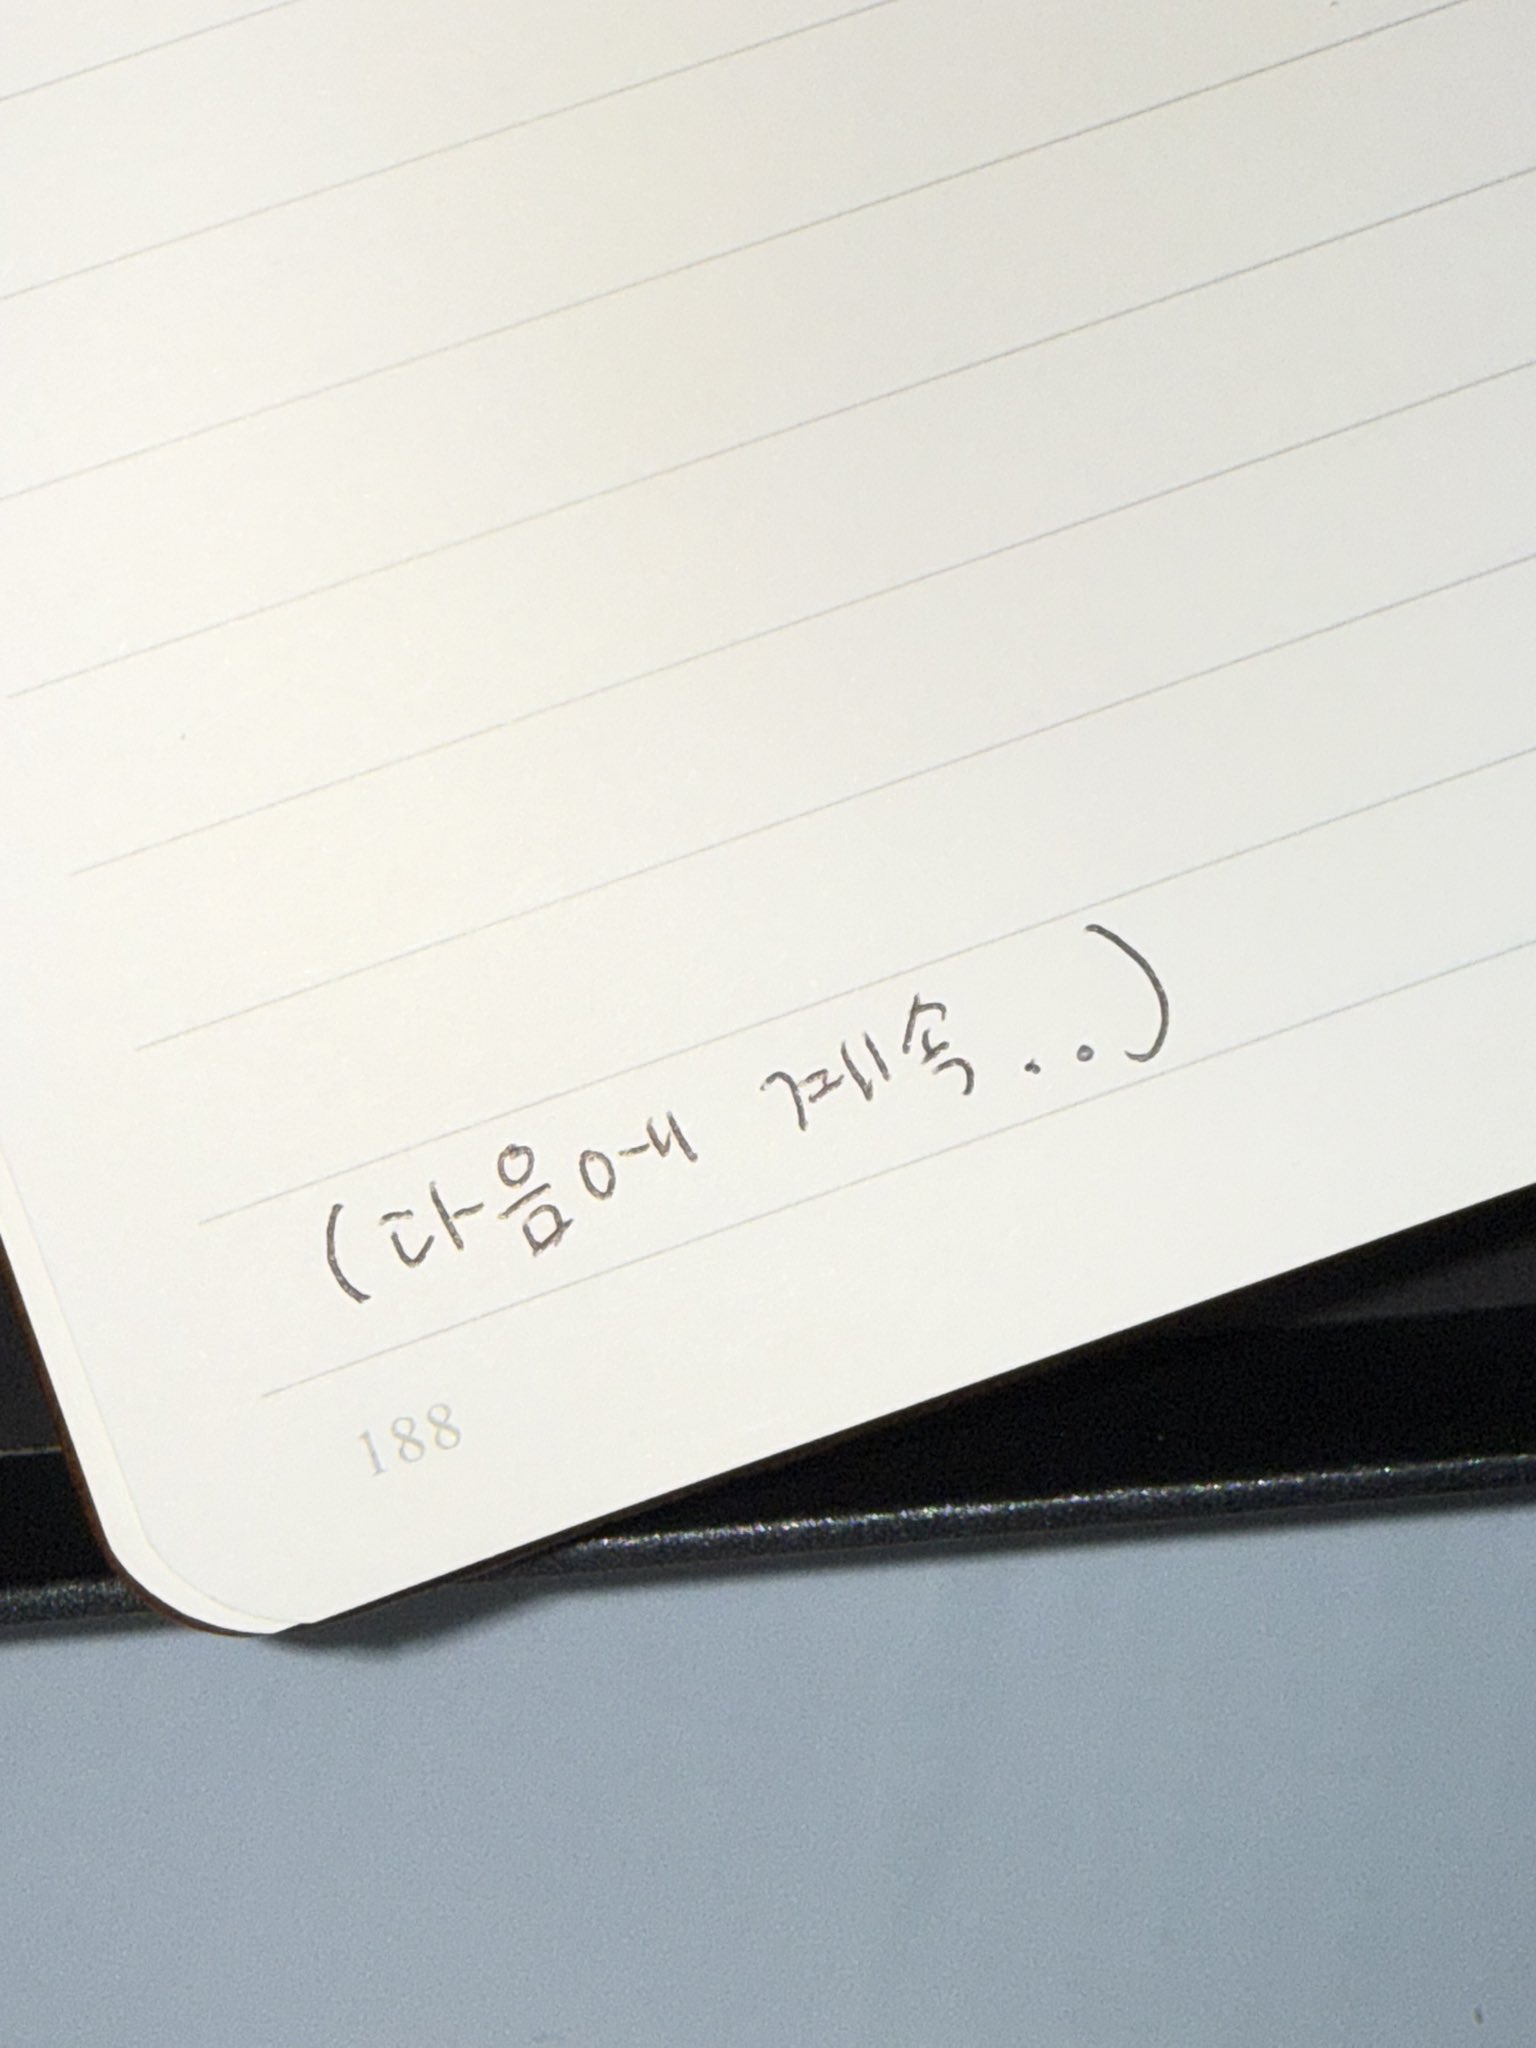 (다음에 계속..)
188